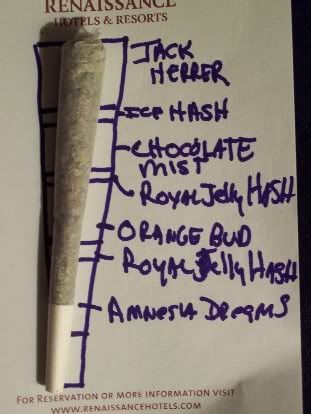 RENAISSANCE
HOTELS & RESORTS
JACK
HERRER
ICE HASH
CHOCOLATE
MIST
ROYAL JELLY HASH
ORANGE BUD
ROYAL JELLY HASH
AMNESIA DREAMS
FOR RESERVATION OR MORE INFORMATION VISIT
WWW.RENAISSANCEHOTELS.COM